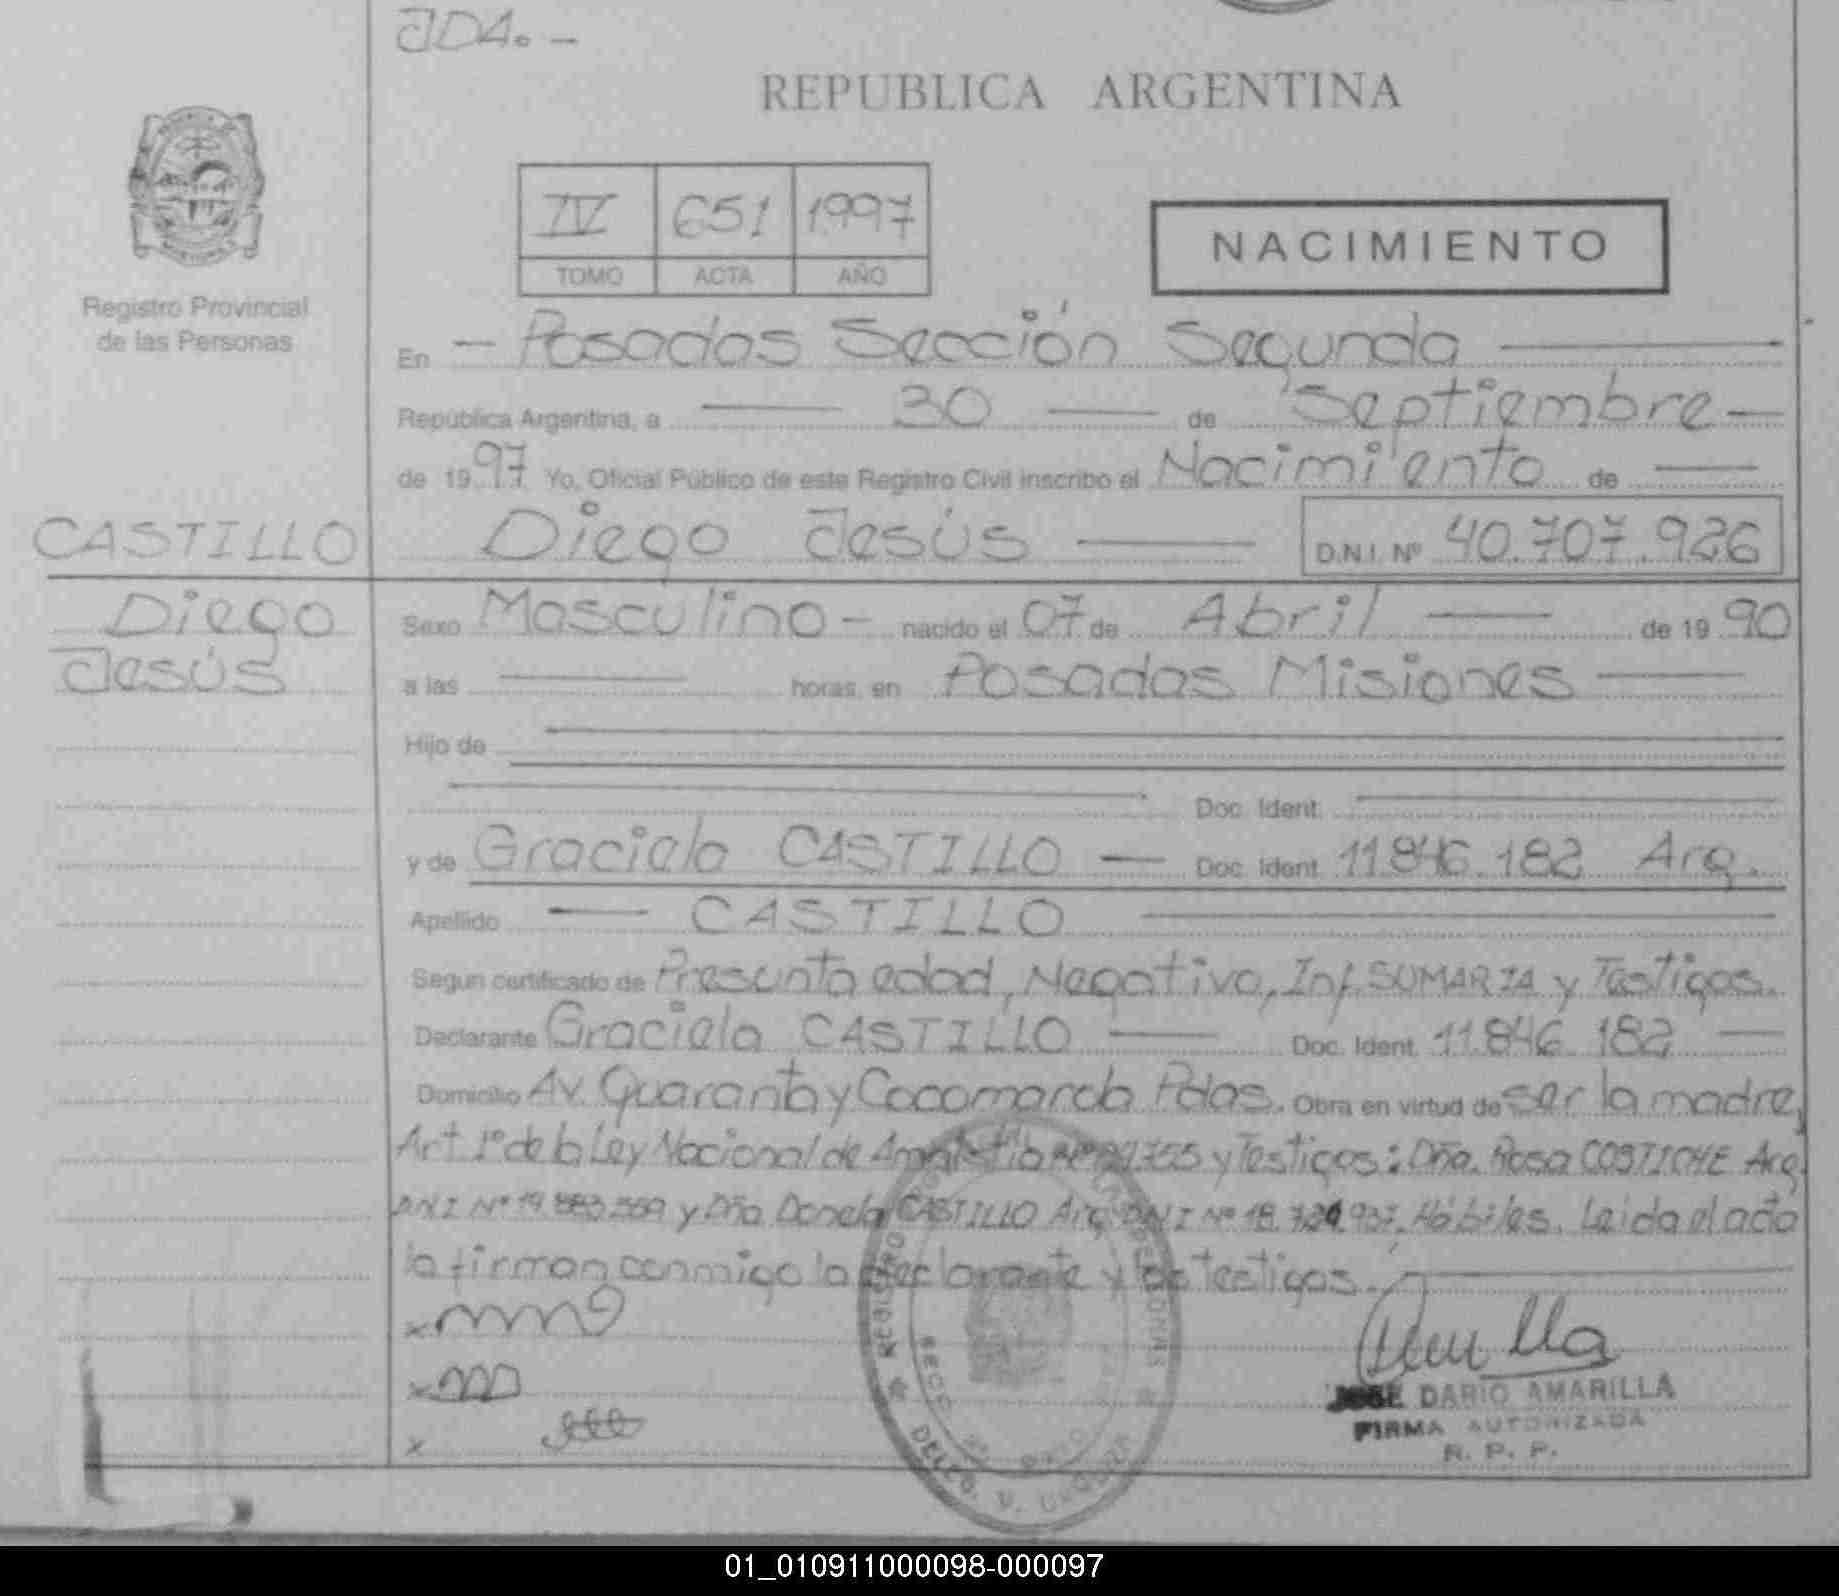 JDA. —
REPUBLICA ARGENTINA
IV 651 1997
TOMO ACTA AÑO
NACIMIENTO
Registro Provincial
de las Personas
En — Posadas Sección Segunda —
República Argentina, a — 30 — de Septiembre —
de 1997 Yo, Oficial Público de este Registro Civil inscribo el Nacimiento de —
CASTILLO Diego Jesús — D.N.I. Nº 40.707.926
Diego
Jesús
Sexo Masculino — nacido el 07 de Abril — de 1990
a las — horas, en Posadas Misiones —
Hijo de —
— Doc. Ident. —
y de Graciela CASTILLO — Doc. Ident. 11.846.182 Arg.
Apellido — CASTILLO —
Segun certificado de Presunta edad, Negativo, Inf. SUMARIA y Testigos.
Declarante Graciela CASTILLO — Doc. Ident. 11.846.182 —
Domicilio Av. Quaranta y Cocomarola Pdas. Obra en virtud de ser la madre,
Art 1º de la Ley Nacional de Amnistía y Testigos: Dña. Rosa COSTICHE Arg.
DNI Nº y Dña CASTILLO Arg DNI Nº Hábiles. Leida el acta
la firman conmigo la declarante y los testigos. —
x
x
x
REGISTRO PERSONAS
SECC.
DELEG. V. URQUIZA
JOSE DARIO AMARILLA
FIRMA AUTORIZADA
R. P. P.
01_010911000098-000097